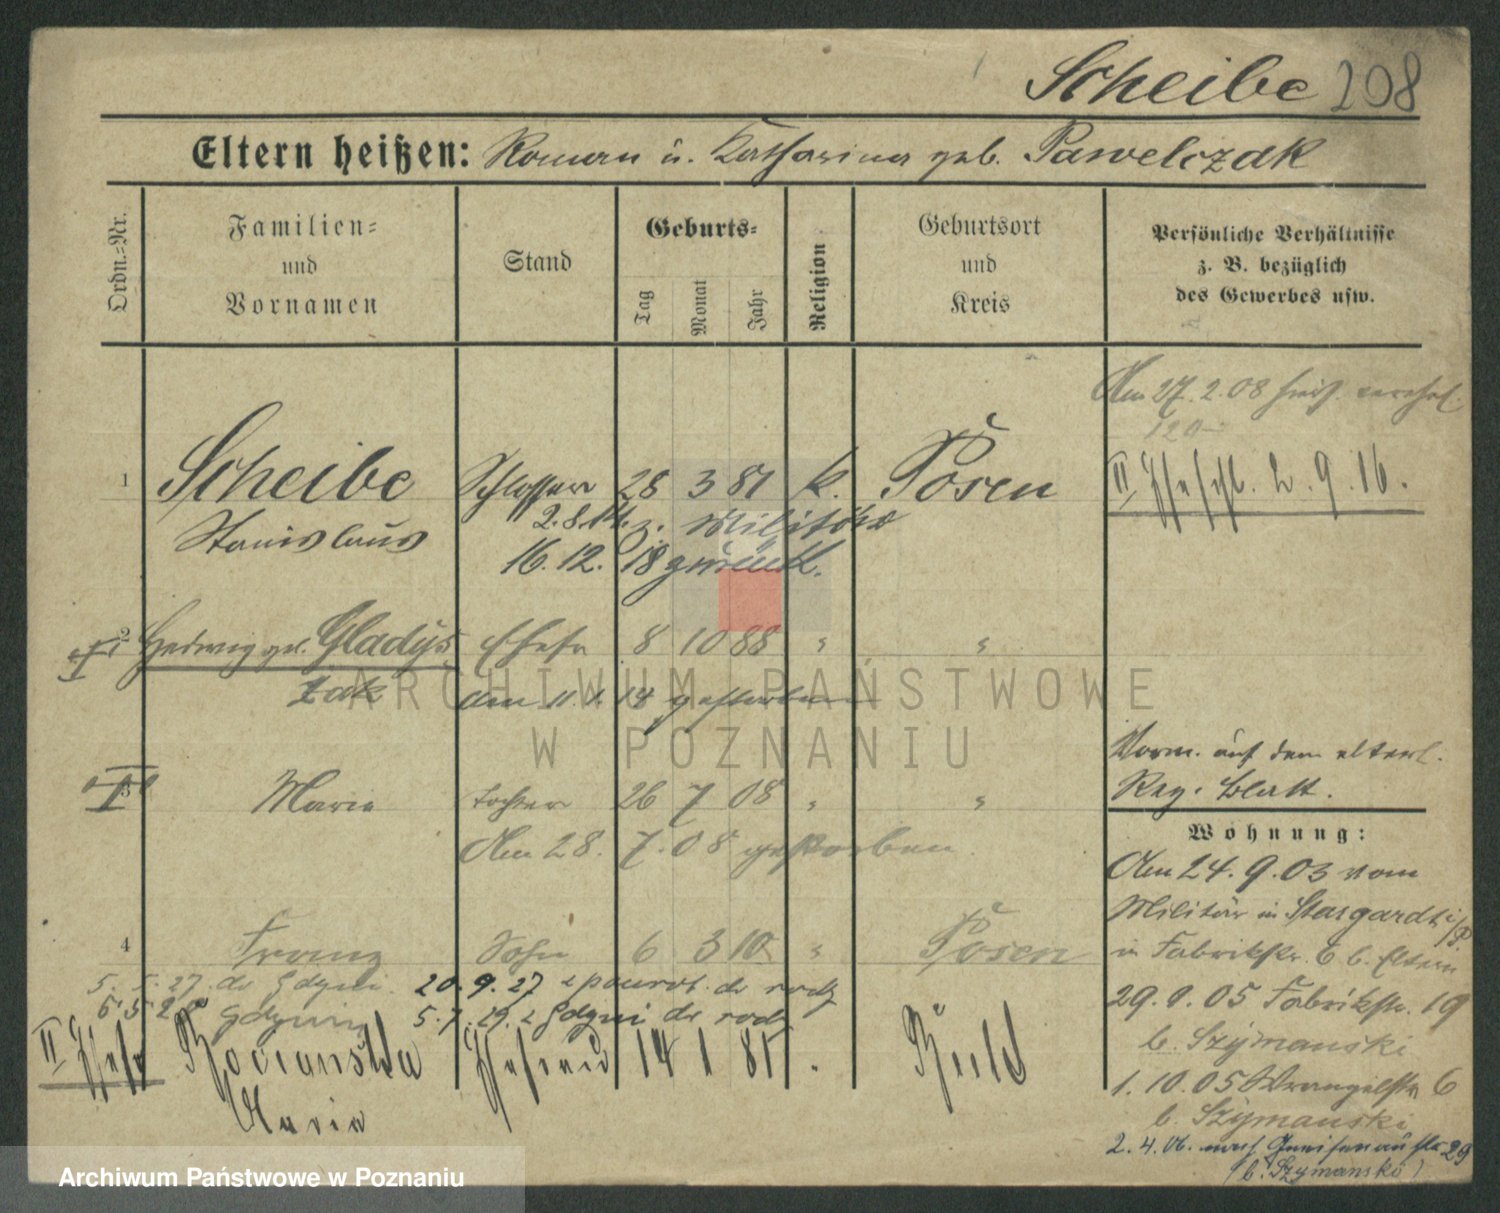 Scheibe 208
Eltern heißen: Roman u. Katharina geb. Pawelczak
Ordn.-Nr.
Familien-
und
Vornamen
Stand
Geburts-
Tag
Monat
Jahr
Religion
Geburtsort
und
Kreis
Persönliche Verhältnisse
z. B. bezüglich
des Gewerbes usw.
Am 27.2.08 hies. verehel.
1 Scheibe Schlosser 28 3 81 k. Posen
II 2.9.16.
Stanislaus
2.8.14. z. Militär
16.12.18 zurück.
2 Hedwig geb. Gladys Ehefr 8 10 88 " "
zak
am 11.1.14 gestorben
3 Marie Tochter 26 7 08 " "
Am 28. 7. 08 gestorben.
Vorm. auf dem elterl.
Reg. Blatt.
4 Franz Sohn 6 3 10 " Posen
5.5.27. do Gdyni. 20.9.27 z powrot. do rodz
Gdyni 5.7.29. z Gdyni do rodz
II Ehefr Bocianska Ehefrau 14 1 81 "
Maria
Wohnung:
Am 24.9.03 vom
Militär in Stargardt i/P.
in Fabrikstr. 6 b. Eltern
29.9.05 Fabrikstr. 19
b. Szymanski
1.10.05 Wrangelstr 6
b. Szymanski
2.4.06. nach Gneisenaustr 29
(b. Szymanski)
ARCHIWUM PAŃSTWOWE
W POZNANIU
Archiwum Państwowe w Poznaniu